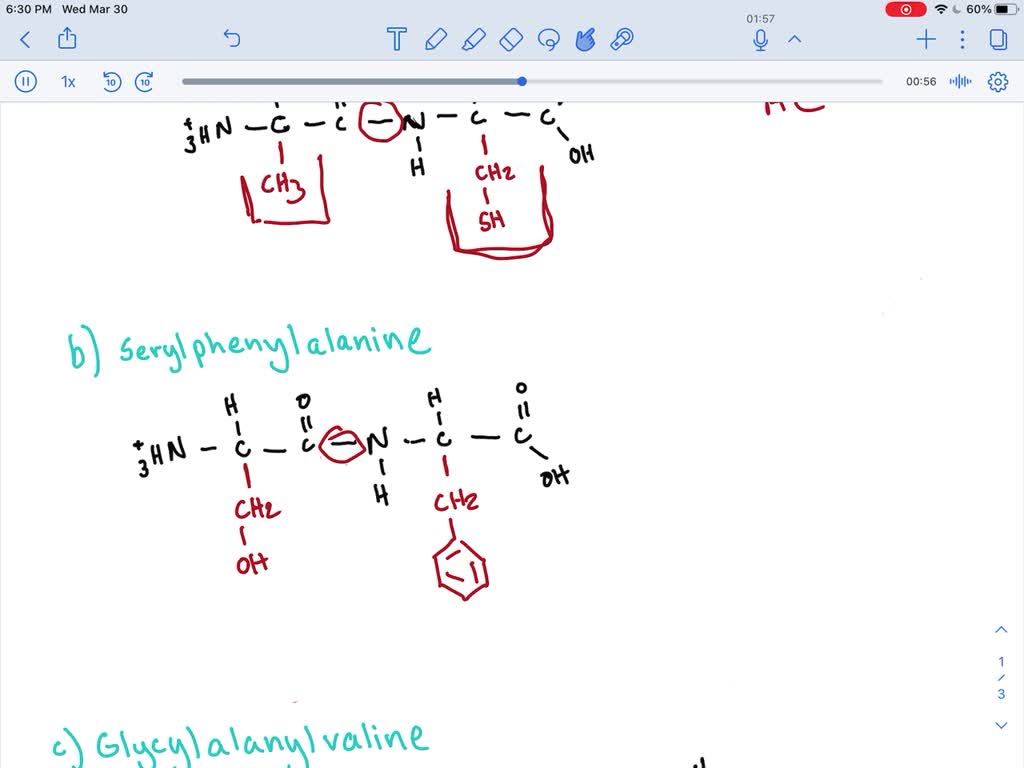 6:30 PM Wed Mar 30
60%
01:57
T
1x
10
10
00:56
+3HN - C - C - N - C - C
OH
H
CH3
CH2
SH
b) serylphenylalanine
H O H O
+3HN - C - C - N - C - C
OH
H
CH2
CH2
OH
1
/
3
c) Glycylalanylvaline